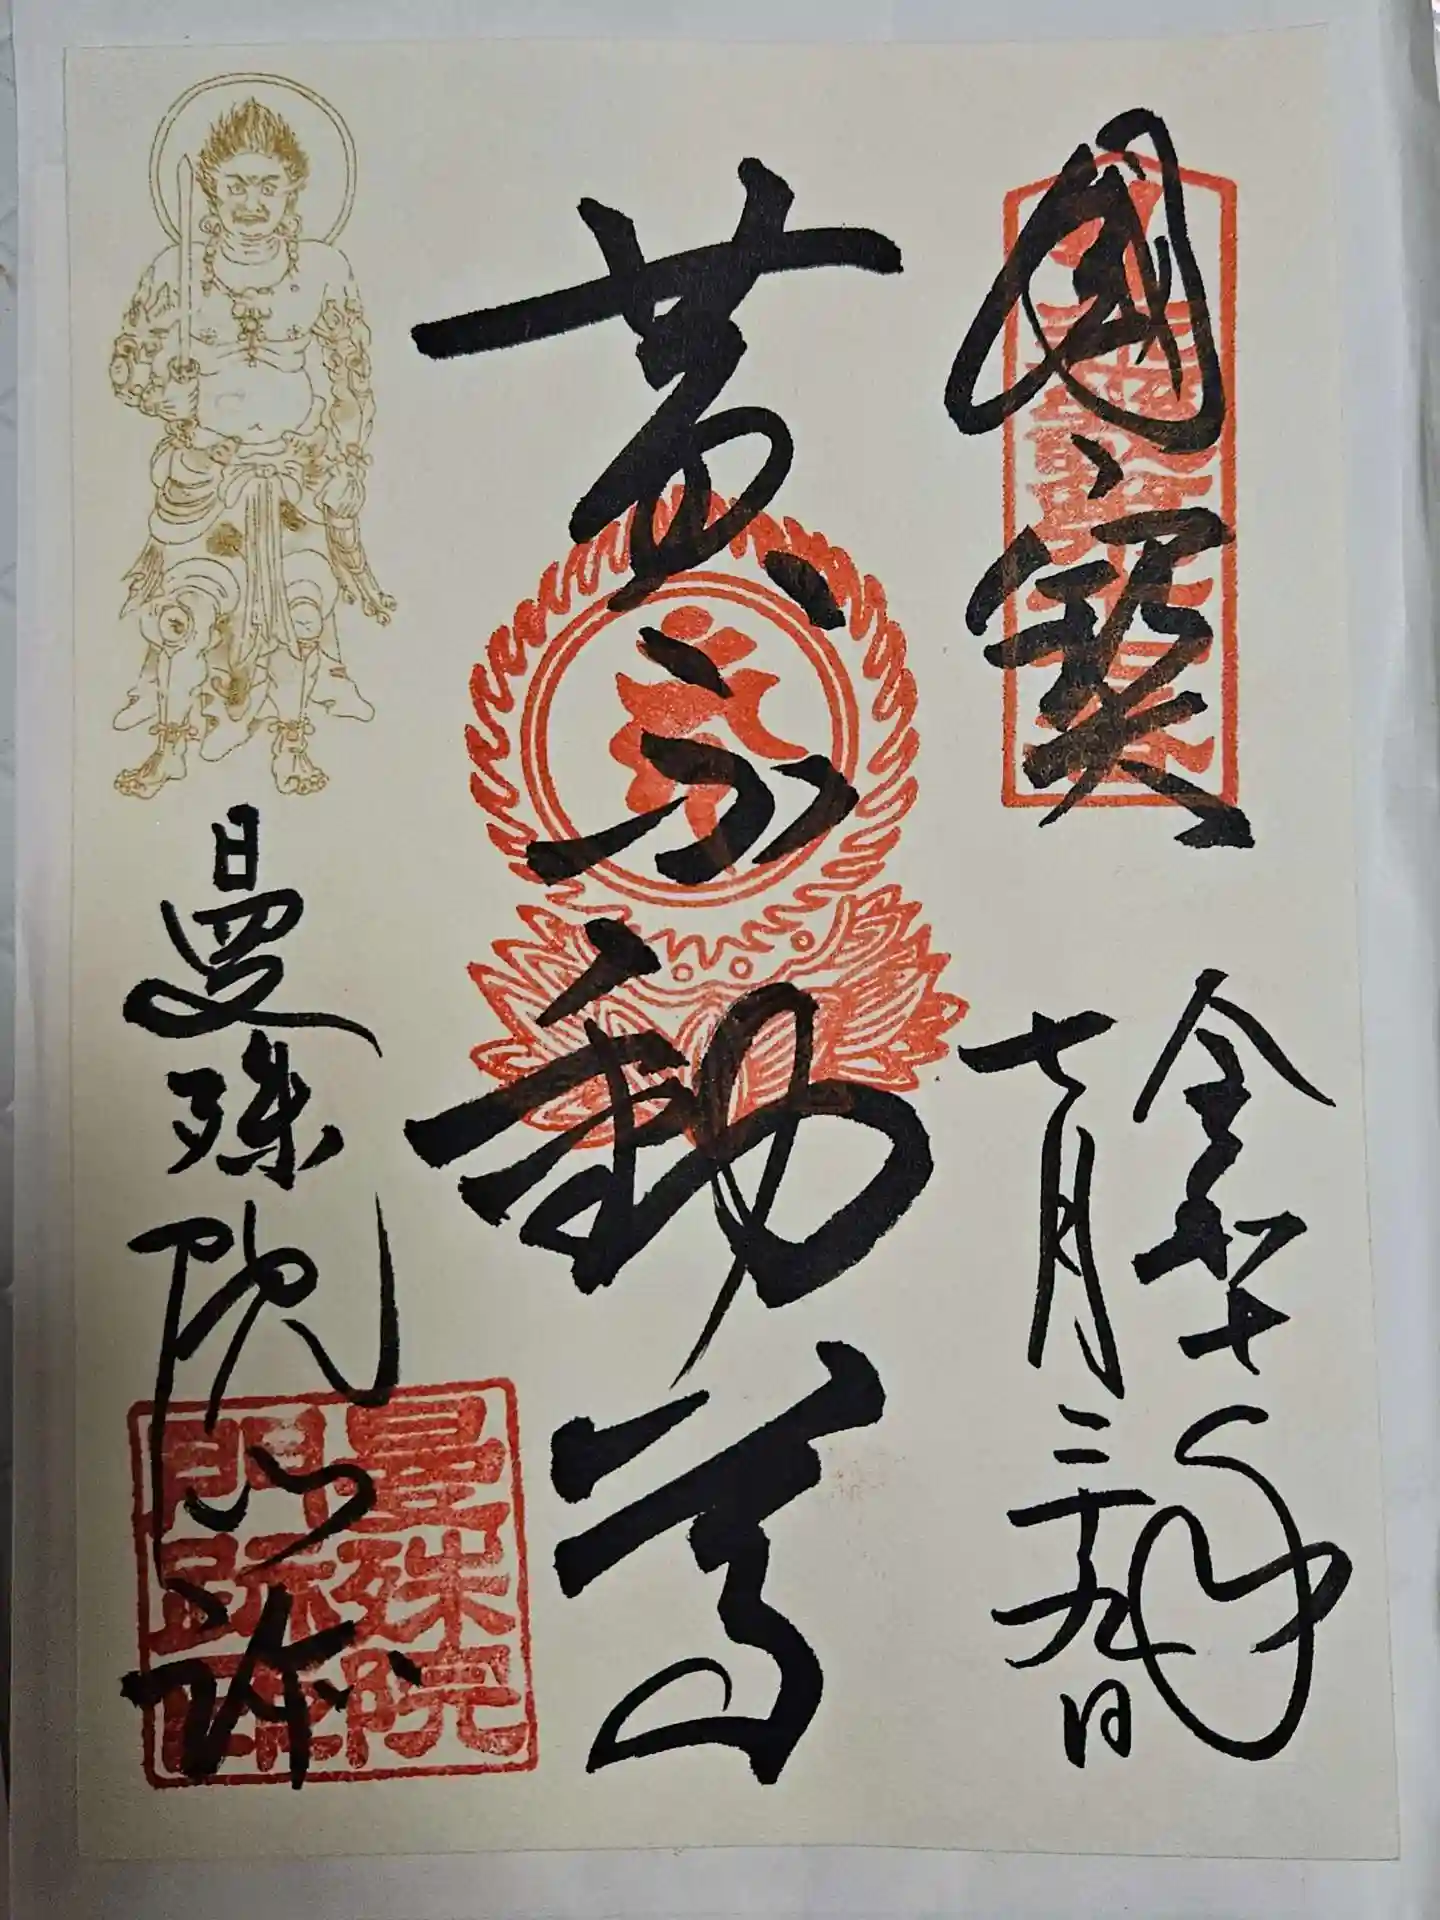 國寶
令和七年
七月二十九日
黄不動尊
曼殊院門跡
曼殊院
門跡印